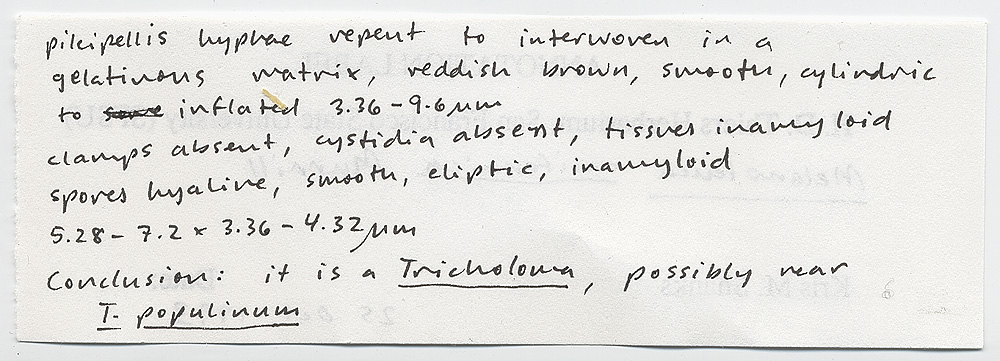 pileipellis hyphae repent to interwoven in a
gelatinous matrix, reddish brown, smooth, cylindric
to inflated 3.36-9.6 µm
clamps absent, cystidia absent, tissues inamyloid
spores hyaline, smooth, eliptic, inamyloid
5.28-7.2 × 3.36-4.32 µm
Conclusion: it is a Tricholoma, possibly near
T. populinum